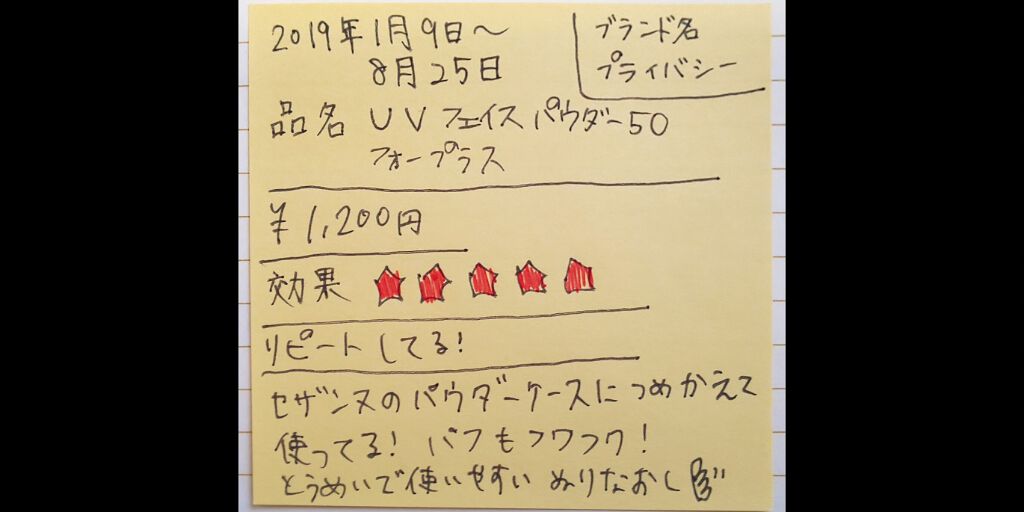 2019年1月9日〜
8月25日
ブランド名
プライバシー
品名 UVフェイスパウダー50
フォープラス
¥1,200円
効果 ★★★★★
リピートしてる!
セザンヌのパウダーケースにつめかえて
使ってる! パフもフワフワ!
とうめいで使いやすい ぬりなおし